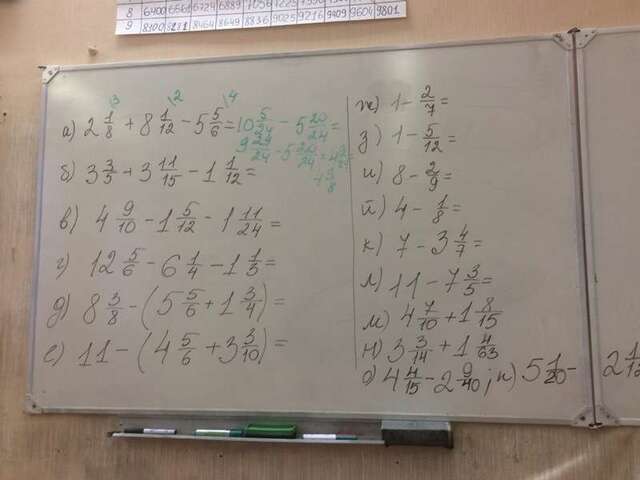 8 6400 6561 6724 6889 7056 7225
9 8100 8281 8464 8649 8836 9025 9216 9409 9604 9801
\3 \2 \4
а) 2 1/8 + 8 1/12 - 5 5/6 = 10 5/24 - 5 20/24 =
9 29/24 - 5 20/24 = 4 9/24
4 3/8
б) 3 3/5 + 3 11/15 - 1 1/12 =
в) 4 9/10 - 1 5/12 - 1 11/24 =
г) 12 5/6 - 6 1/4 - 1 1/3 =
д) 8 3/8 - (5 5/6 + 1 3/4) =
е) 11 - (4 5/6 + 3 3/10) =
ж) 1 - 2/7 =
з) 1 - 5/12 =
и) 8 - 2/9 =
й) 4 - 1/8 =
к) 7 - 3 4/7 =
л) 11 - 7 3/5 =
м) 4 7/10 + 1 8/15
н) 3 3/14 + 1 4/63
о) 4 4/15 - 2 9/40 ; п) 5 1/20 - 2 1/12